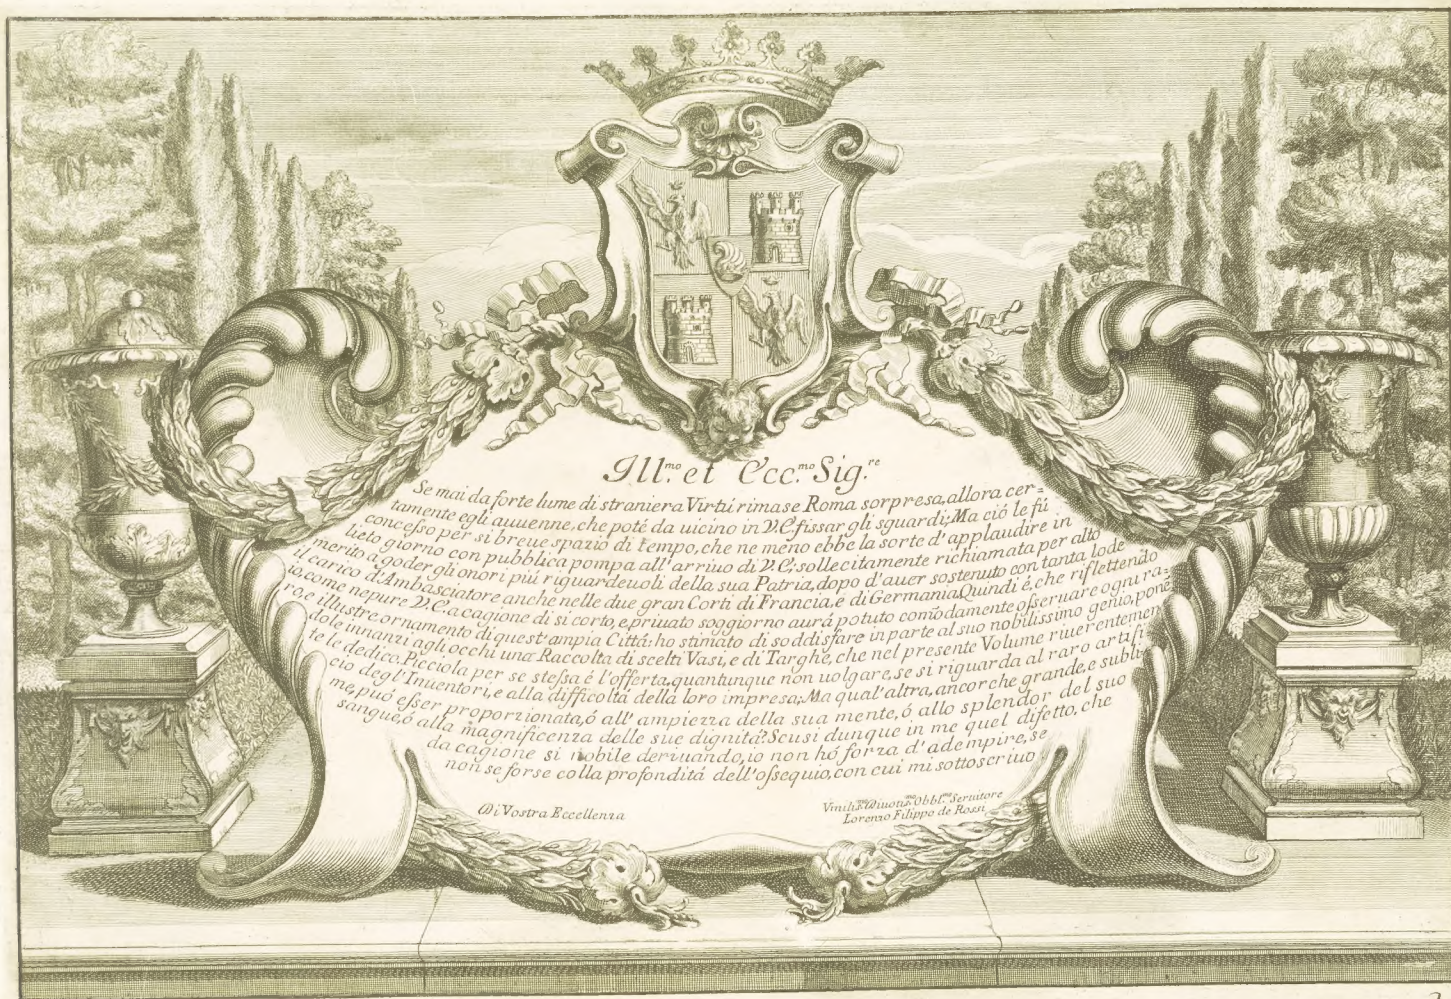 Ill.mo et Ecc.mo Sig.re
Se mai da forte lume di straniera Virtú rimase Roma sorpresa, allora cer=
tamente egli auuenne, che poté da uicino in V.E. fissar gli sguardi; Ma ció le fú
concesso per si breue spazio di tempo, che ne meno ebbe la sorte d'applaudire in
lieto giorno con pubblica pompa all'arriuo di V.E; sollecitamente richiamata per alto
merito a goder gli onori piú riguardeuoli della sua Patria, dopo d'auer sostenuto con tanta lode
il carico d'Ambasciatore anche nelle due gran Corti di Francia, e di Germania. Quindi é, che riflettendo
io, come nepure V.E. a cagione di si corto, e priuato soggiorno aurá potuto comõdamente osseruare ogni ra=
ro, e illustre ornamento di quest'ampia Cittá: ho stimato di soddisfare in parte al suo nobilissimo genio, ponẽ
dole innanzi agli occhi una Raccolta di scelti Vasi, e di Targhe, che nel presente Volume riuerentemen
te le dedico. Picciola per se stessa é l'offerta, quantunque non uolgare, se si riguarda al raro artifi
cio degl'Inuentori, e alla difficoltá della loro impresa; Ma qual'altra, ancor che grande, e subli
me, puó esser proporzionata, ó all' ampiezza della sua mente, ó allo splendor del suo
sangue, ó alla magnificenza delle sue dignitá? Scusi dunque in me quel difetto, che
da cagione si nobile deriuando, io non hó forza d'adempire, se
non se forse colla profonditá dell'ossequio, con cui mi sottoscriuo
Di Vostra Eccellenza
Vmilis.mo Diuotis.mo Obbl.mo Seruitore
Lorenzo Filippo de Rossi